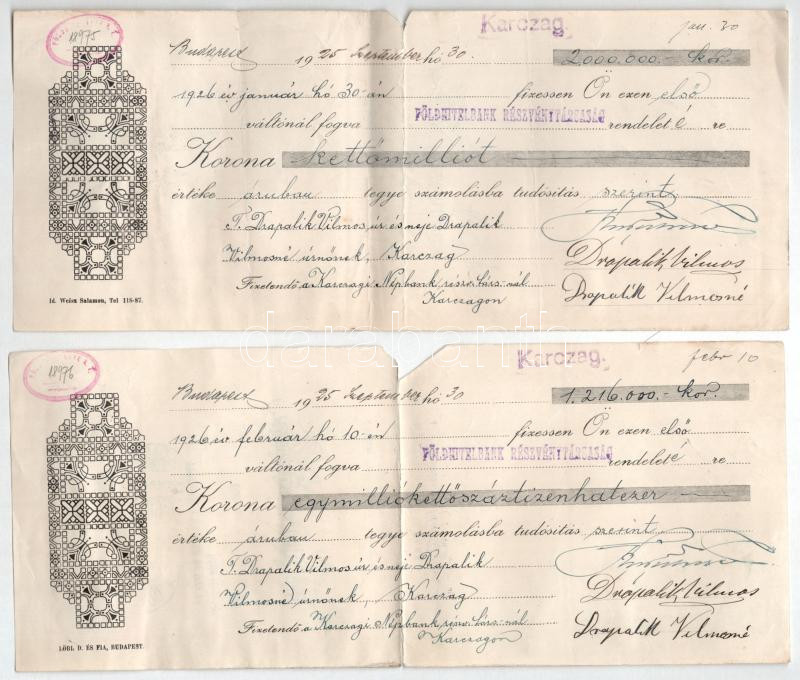 18975
Karczag.
jan. 30
Budapest 1925 Szeptember hó 30. 2000.000.- kor.
1926 év január hó 30-án fizessen Ön ezen első
váltónál fogva FÖLDHITELBANK RÉSZVÉNYTÁRSASÁG rendeleté re
Korona kettőmilliót
értéke áruban tegye számolásba tudósitás szerint
T. Drapalik Vilmos úr és neje Drapalik
Vilmosné úrnőnek, Karczag
Drapalik Vilmos
Fizetendő a Karczagi Népbank részv. társ.-nál
Karczagon
Drapalik Vilmosné
Id. Weisz Salamon, Tel 118-87.
darabanth
18976
Karczag.
febr 10
Budapest 1925 Szeptember hó 30 1.216.000.- kor.
1926 év február hó 10-én fizessen Ön ezen első
váltónál fogva FÖLDHITELBANK RÉSZVÉNYTÁRSASÁG rendeleté re
Korona egymilliókettőszáztizenhatezer
értéke áruban tegye számolásba tudósitás szerint
T. Drapalik Vilmos úr és neje Drapalik
Vilmosné úrnőnek, Karczag
Drapalik Vilmos
Fizetendő a Karczagi Népbank részv. társ.-nál
Karczagon
Drapalik Vilmosné
LÖBL D. ÉS FIA, BUDAPEST.